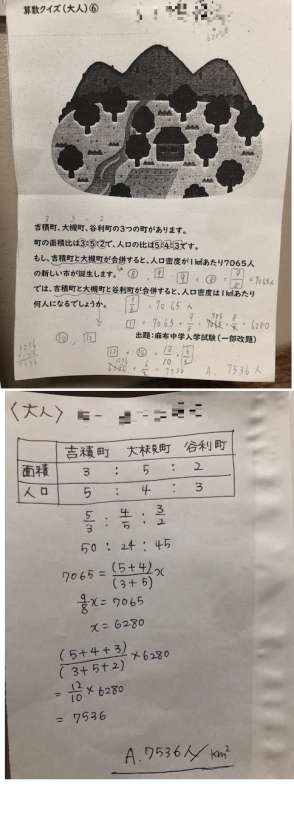 算数クイズ(大人)⑥
吉積町、大槻町、谷利町の3つの町があります。
町の面積比は3:5:2で、人口の比は5:4:3です。
もし、吉積町と大槻町が合併すると、人口密度が1k㎡あたり7065人
の新しい市が誕生します。
では、吉積町と大槻町と谷利町が合併すると、人口密度は1k㎡あたり
何人になるでしょうか。
出題:麻布中学入学試験(一部改題)
A. 7536人
〈大人〉
吉積町 大槻町 谷利町
面積 3 : 5 : 2
人口 5 : 4 : 3
5/3 : 4/5 : 3/2
50 : 24 : 45
7065 = (5+4)/(3+5) x
9/8 x = 7065
x = 6280
(5+4+3)/(3+5+2) × 6280
= 12/10 × 6280
= 7536
A. 7536人/km²